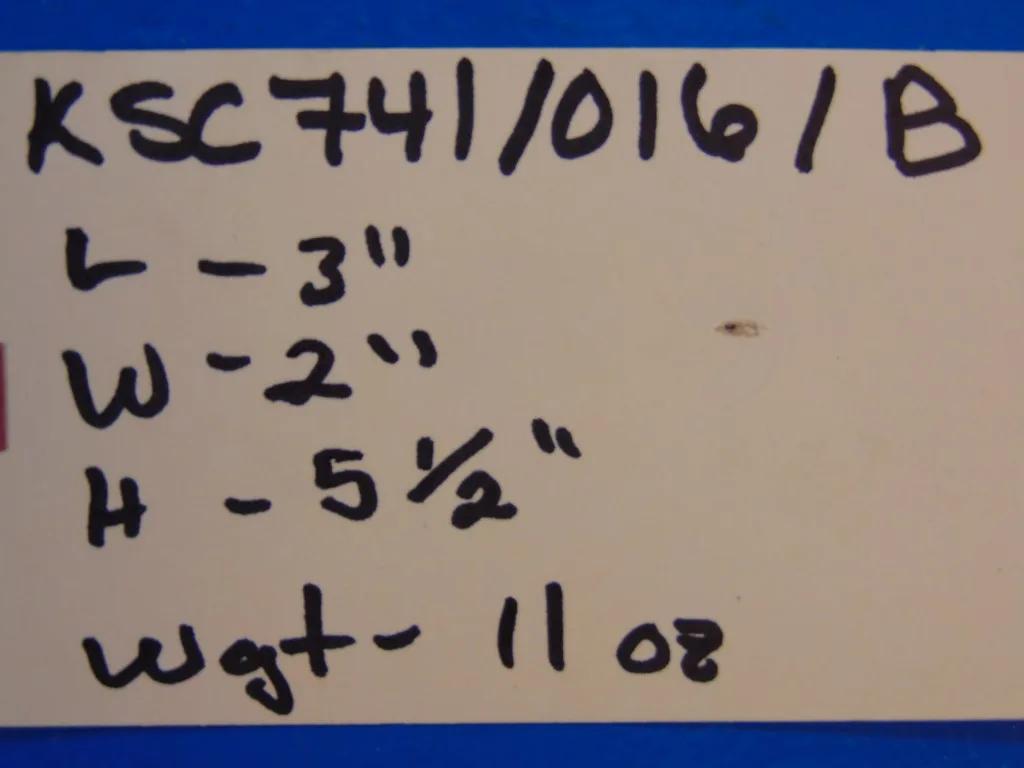 KSC741/016/B
L - 3"
W - 2"
H - 5 1/2"
Wgt - 11 oz